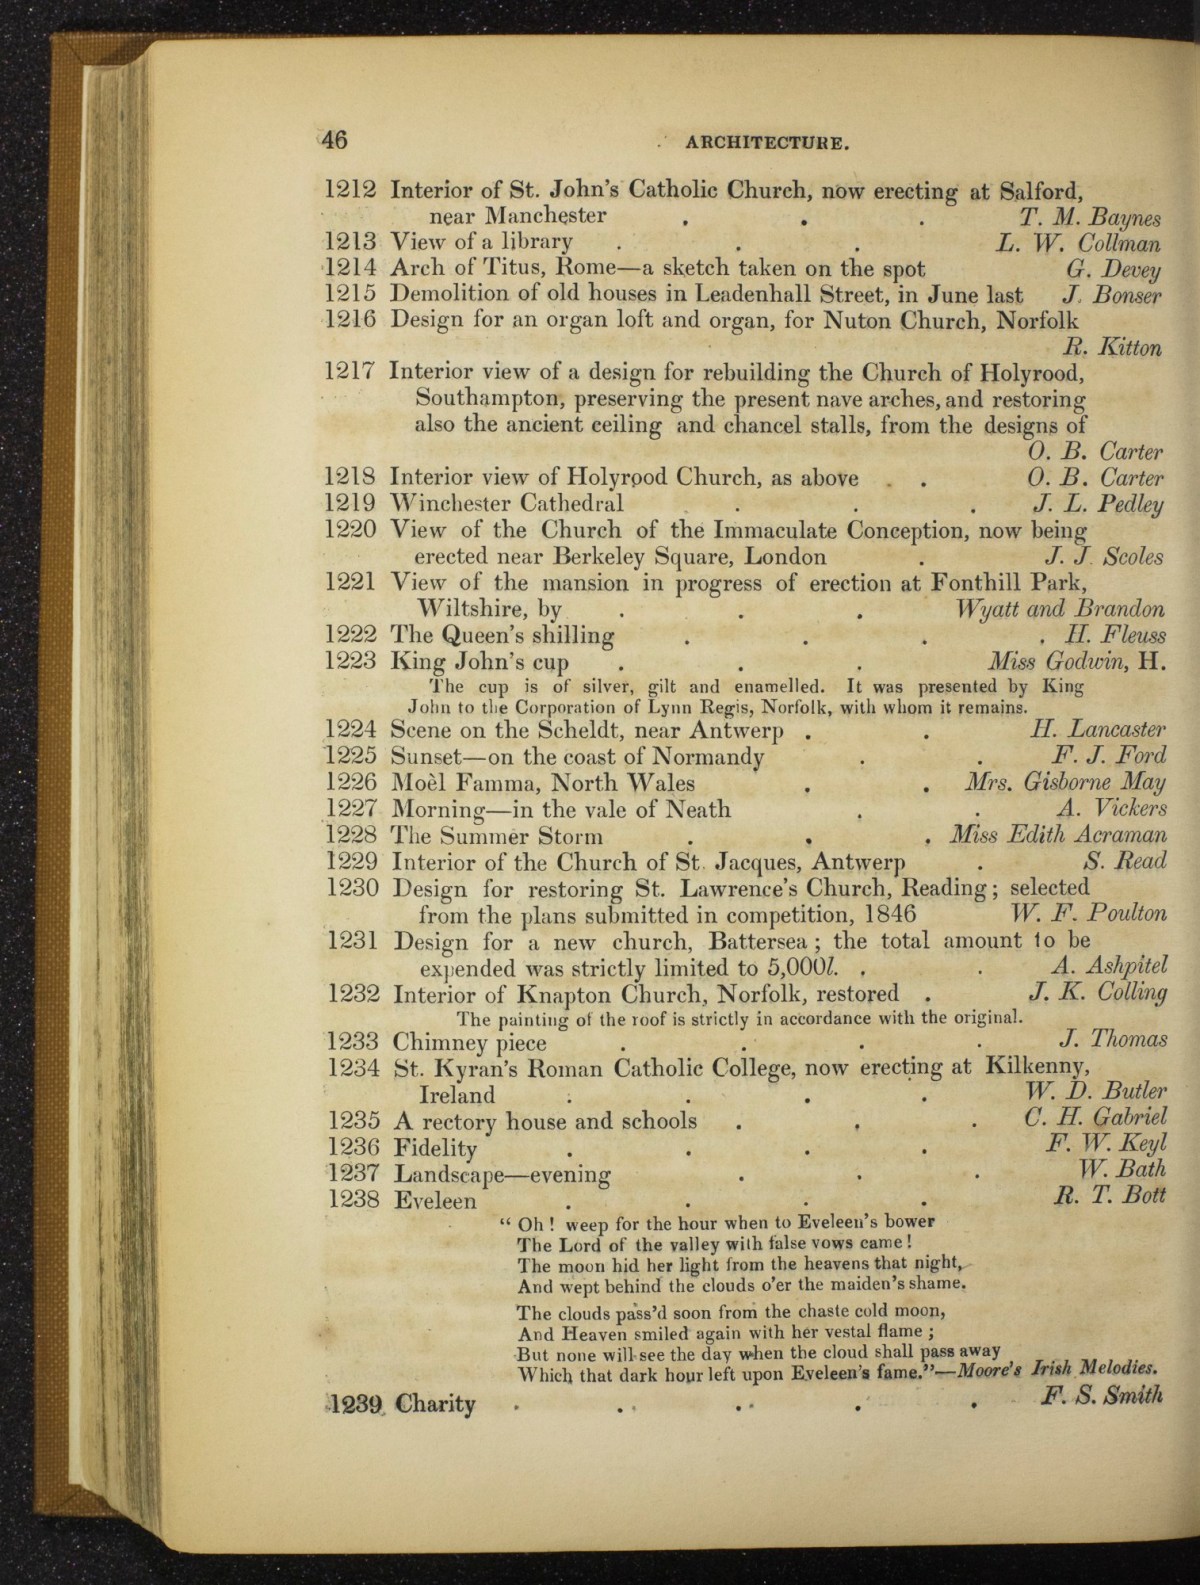 46 ARCHITECTURE.
1212 Interior of St. John's Catholic Church, now erecting at Salford,
near Manchester . . . T. M. Baynes
1213 View of a library . . . L. W. Collman
1214 Arch of Titus, Rome—a sketch taken on the spot G. Devey
1215 Demolition of old houses in Leadenhall Street, in June last J. Bonser
1216 Design for an organ loft and organ, for Nuton Church, Norfolk
R. Kitton
1217 Interior view of a design for rebuilding the Church of Holyrood,
Southampton, preserving the present nave arches, and restoring
also the ancient ceiling and chancel stalls, from the designs of
O. B. Carter
1218 Interior view of Holyrood Church, as above . . O. B. Carter
1219 Winchester Cathedral . . . J. L. Pedley
1220 View of the Church of the Immaculate Conception, now being
erected near Berkeley Square, London . J. J. Scoles
1221 View of the mansion in progress of erection at Fonthill Park,
Wiltshire, by . . . Wyatt and Brandon
1222 The Queen's shilling . . . . H. Fleuss
1223 King John's cup . . . Miss Godwin, H.
The cup is of silver, gilt and enamelled. It was presented by King
John to the Corporation of Lynn Regis, Norfolk, with whom it remains.
1224 Scene on the Scheldt, near Antwerp . . H. Lancaster
1225 Sunset—on the coast of Normandy . . F. J. Ford
1226 Moèl Famma, North Wales . . Mrs. Gisborne May
1227 Morning—in the vale of Neath . . A. Vickers
1228 The Summer Storm . . . Miss Edith Acraman
1229 Interior of the Church of St. Jacques, Antwerp . S. Read
1230 Design for restoring St. Lawrence's Church, Reading; selected
from the plans submitted in competition, 1846 W. F. Poulton
1231 Design for a new church, Battersea; the total amount to be
expended was strictly limited to 5,000l. . . A. Ashpitel
1232 Interior of Knapton Church, Norfolk, restored . J. K. Colling
The painting of the roof is strictly in accordance with the original.
1233 Chimney piece . . . . J. Thomas
1234 St. Kyran's Roman Catholic College, now erecting at Kilkenny,
Ireland . . . . W. D. Butler
1235 A rectory house and schools . . . C. H. Gabriel
1236 Fidelity . . . . F. W. Keyl
1237 Landscape—evening . . . W. Bath
1238 Eveleen . . . . R. T. Bott
"Oh! weep for the hour when to Eveleen's bower
The Lord of the valley with false vows came!
The moon hid her light from the heavens that night,
And wept behind the clouds o'er the maiden's shame.
The clouds pass'd soon from the chaste cold moon,
And Heaven smiled again with her vestal flame;
But none will see the day when the cloud shall pass away
Which that dark hour left upon Eveleen's fame."—Moore's Irish Melodies.
1239 Charity . . . . . F. S. Smith